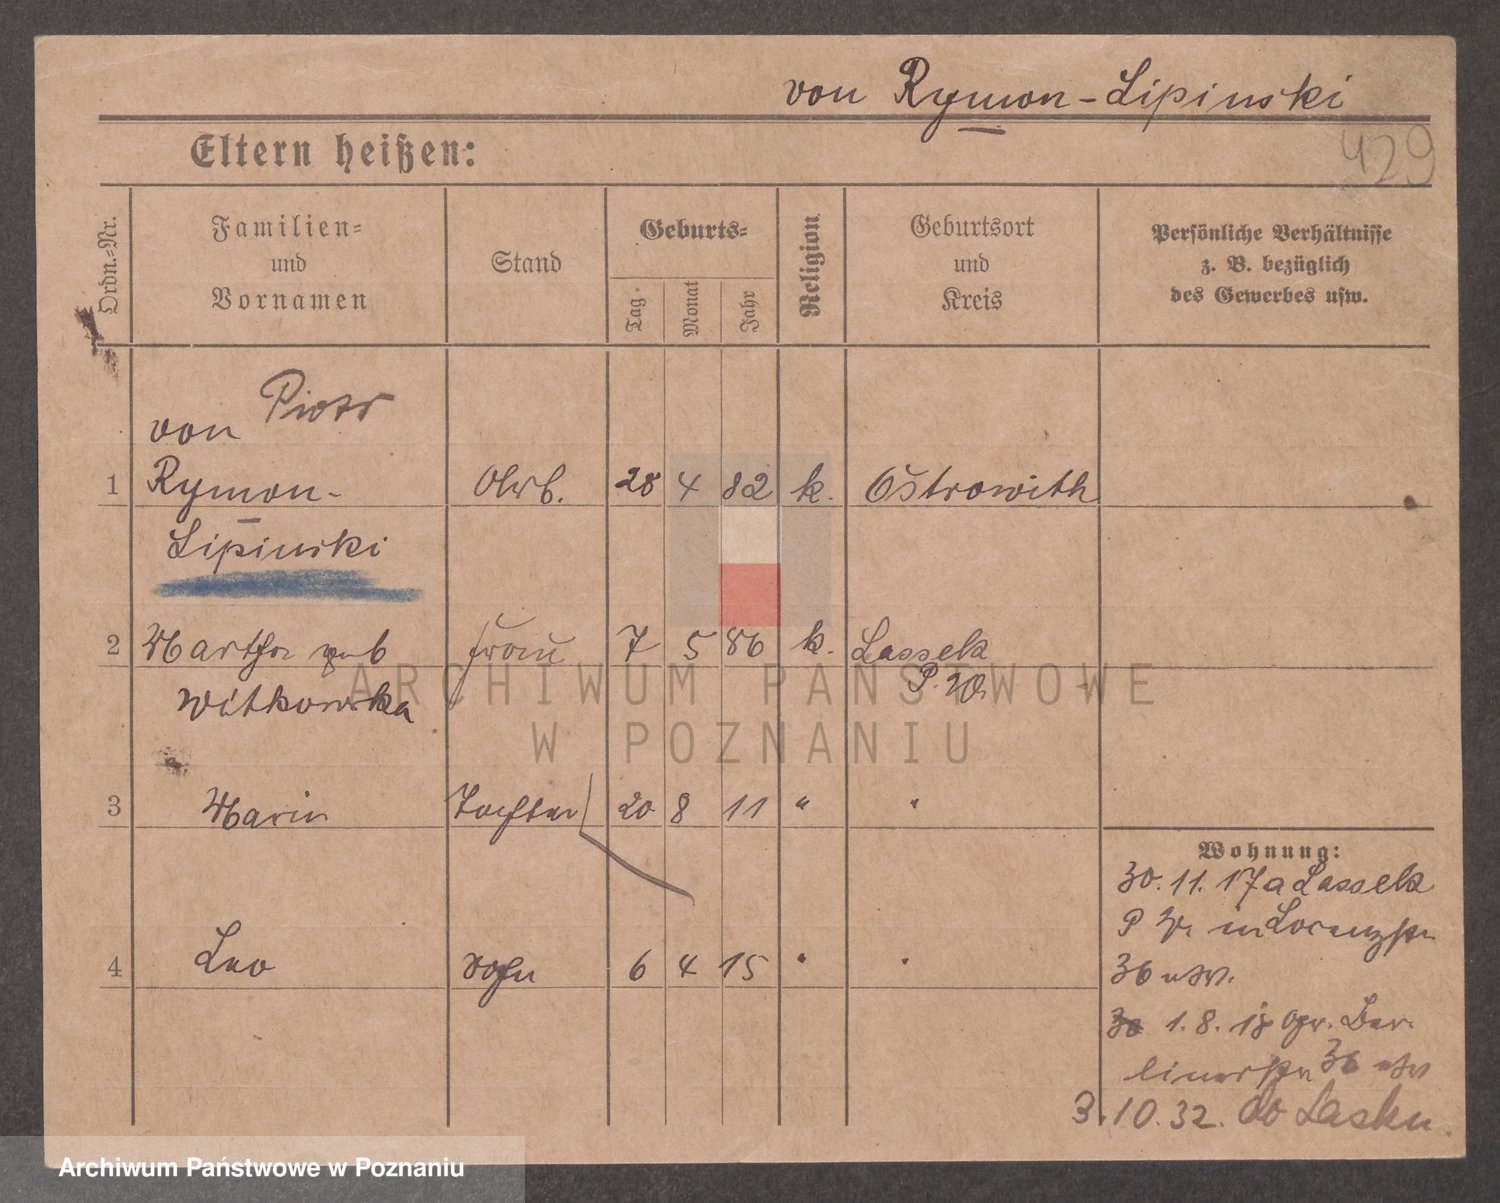 von Rymon-Lipinski
429
Eltern heißen:
Ordn.-Nr.
Familien-
und
Vornamen
Stand
Geburts-
Tag
Monat
Jahr
Religion
Geburtsort
und
Kreis
Persönliche Verhältnisse
z. B. bezüglich
des Gewerbes usw.
Piotr
von
1 Rymon- Arb. 28 4 82 k. Ostrowith
Lipinski
2 Martha geb Frau 7 5 86 k. Lassek
P. W.
Witkowska
3 Marie Tochter 20 8 11 " "
4 Leo Sohn 6 4 15 " "
Wohnung:
30. 11. 17 a Lassek
P W. in Lorenzstr
36
1. 8. 18 Ber-
linerstr 36
3. 10. 32. do Lasku.
ARCHIWUM PAŃSTWOWE
W POZNANIU
Archiwum Państwowe w Poznaniu